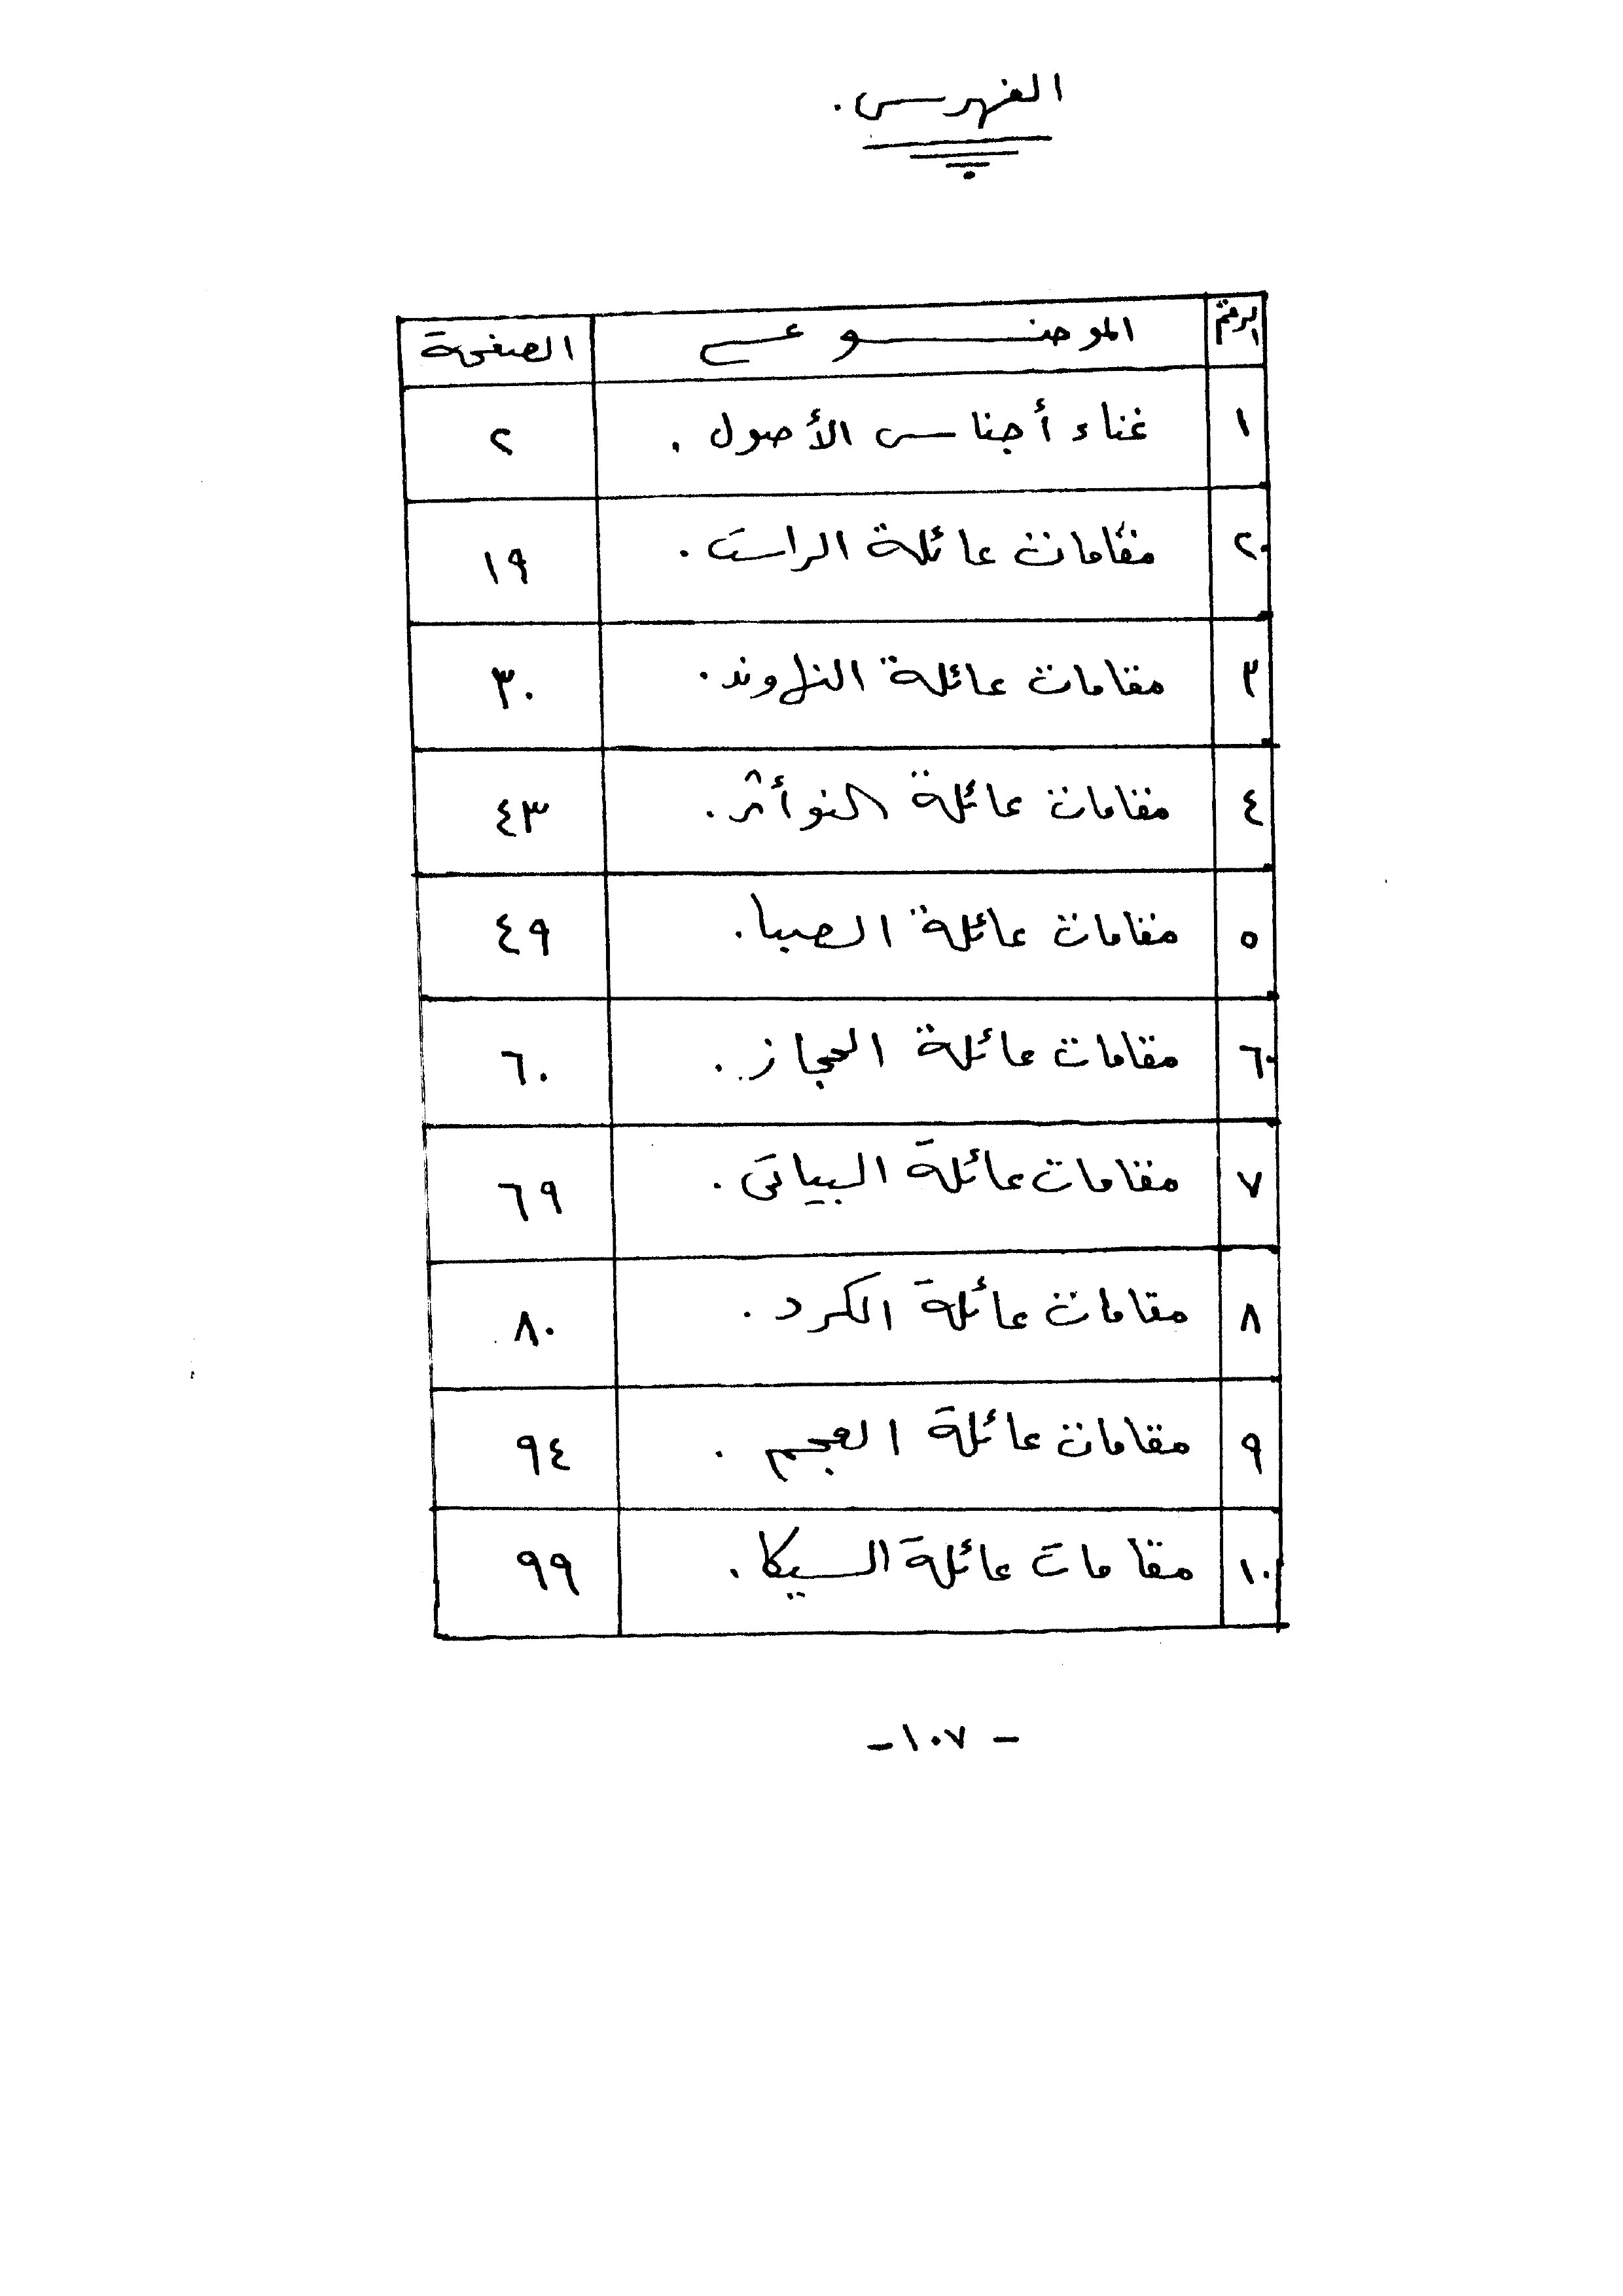 الفهرس.
الرقم الموضوع الصفحة
١ غناء أجناس الأصول. ٢
٢ مقامات عائلة الراست. ١٩
٣ مقامات عائلة النهاوند. ٣٠
٤ مقامات عائلة النوأثر. ٤٣
٥ مقامات عائلة الصبا. ٤٩
٦ مقامات عائلة الحجاز. ٦٠
٧ مقامات عائلة البياتى. ٦٩
٨ مقامات عائلة الكرد. ٨٠
٩ مقامات عائلة العجم. ٩٤
١٠ مقامات عائلة السيكا. ٩٩
- ١٠٧ -